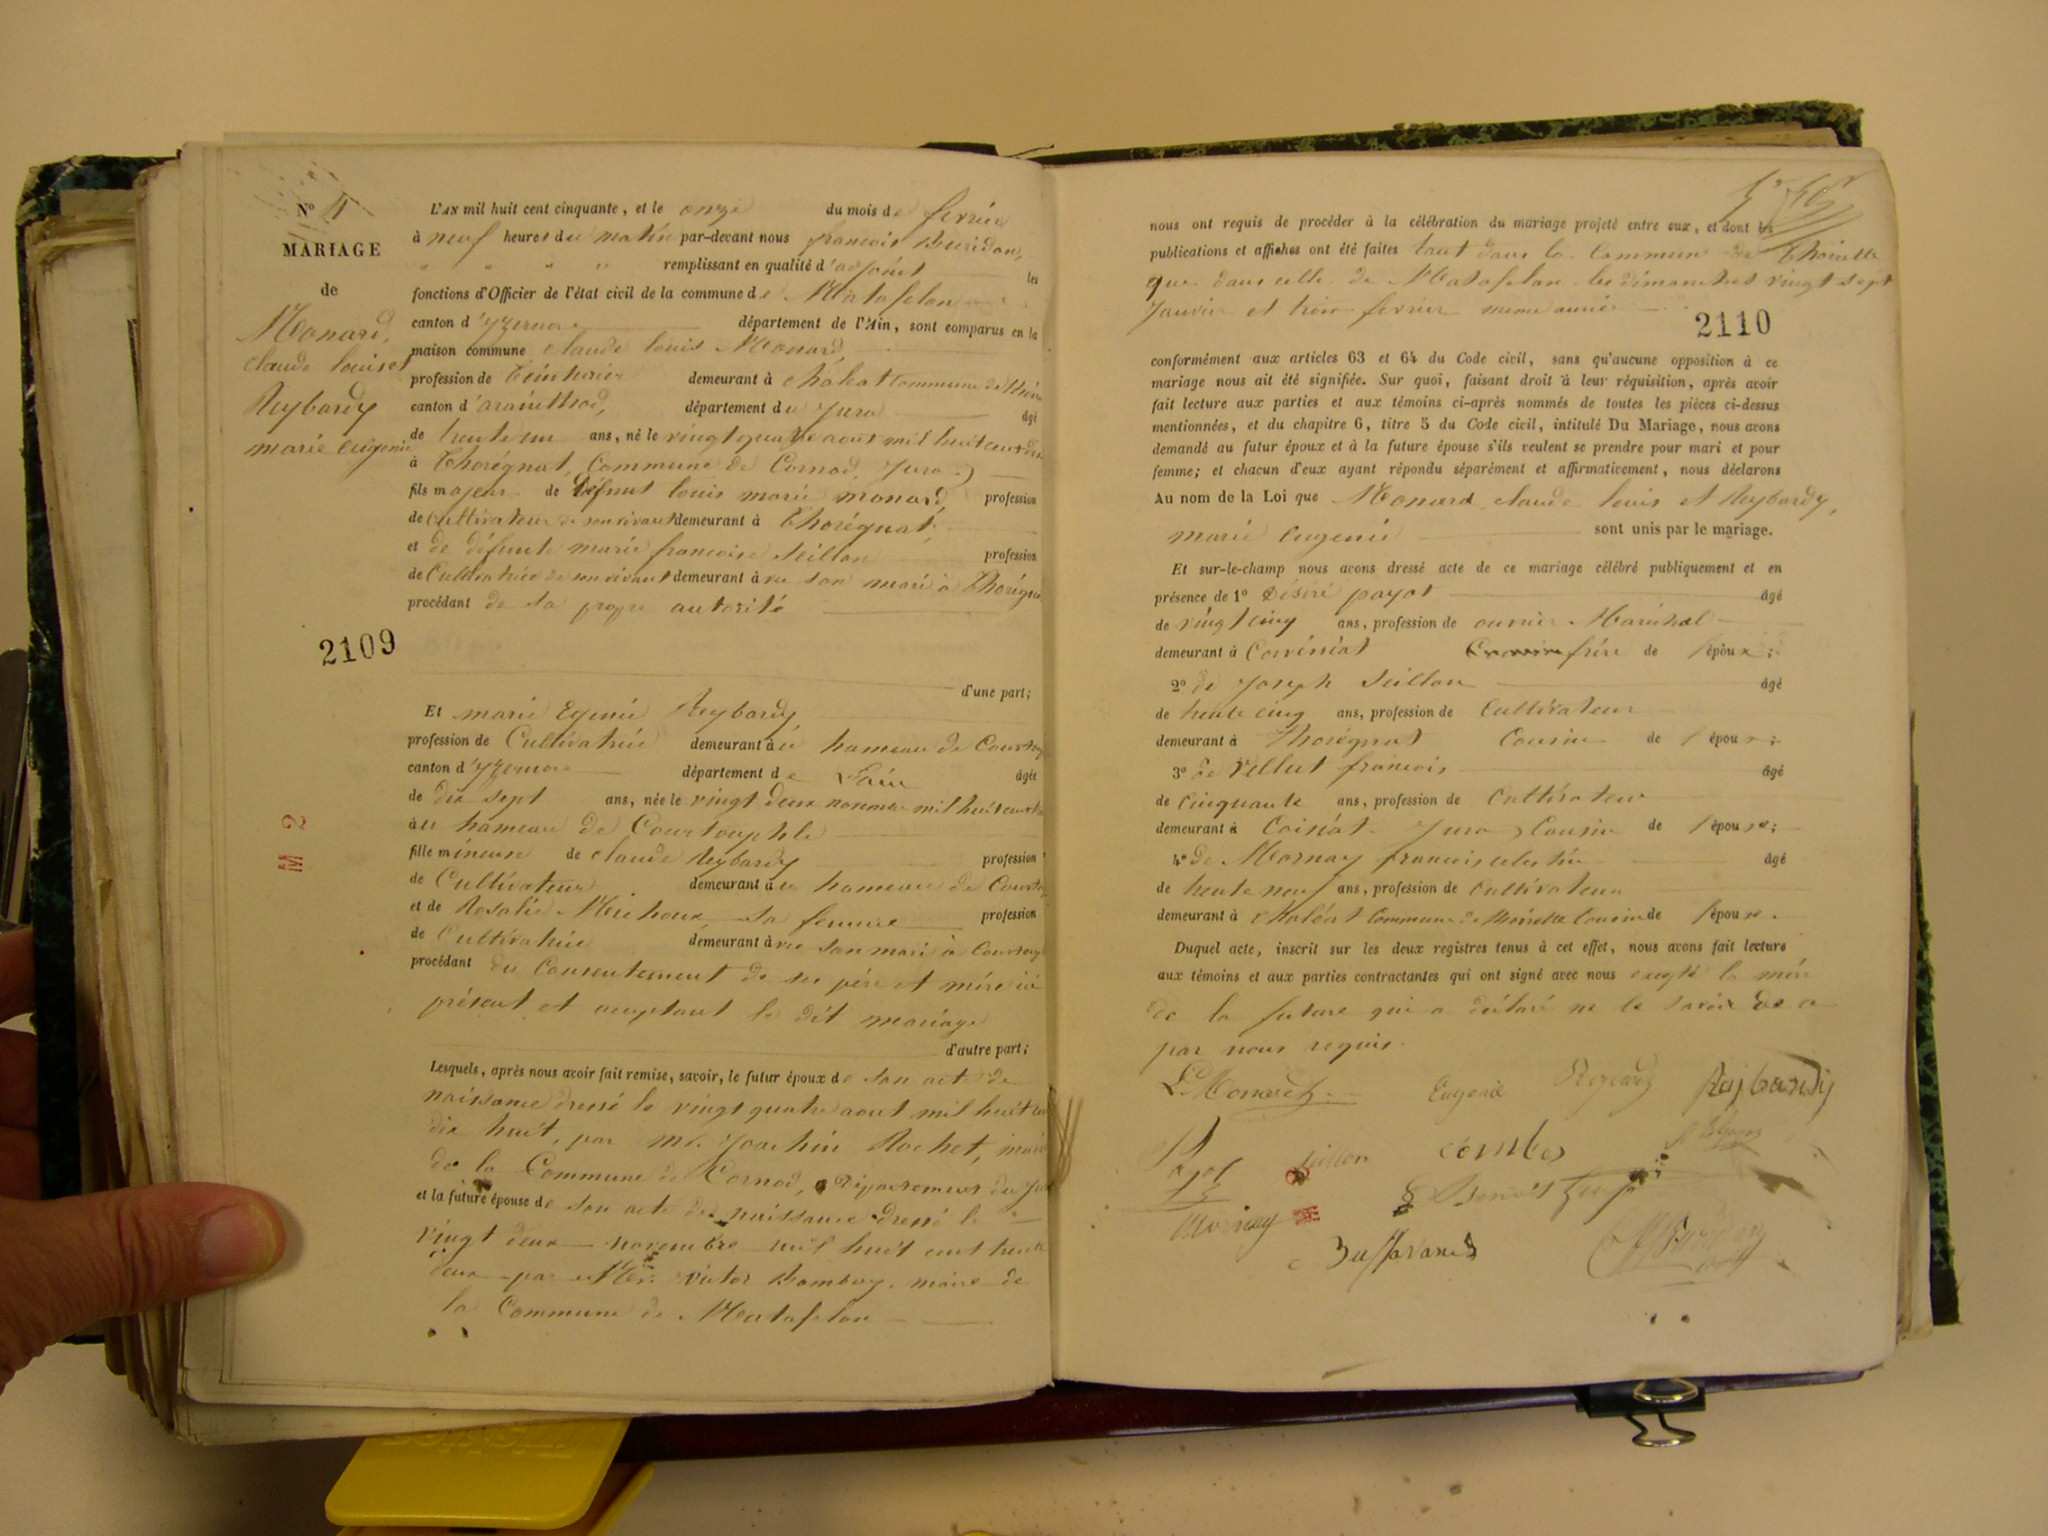 Nº 4
MARIAGE
de
Monard,
claude louis et
Reybardy
marie eugenie
2109
M 2
L'AN mil huit cent cinquante, et le onze du mois de fevrier
à neuf heures du matin par-devant nous francois Buridon,
remplissant en qualité d'adjoint les
fonctions d'Officier de l'état civil de la commune de Matafelon
canton d'yzernore département de l'Ain, sont comparus en la
maison commune claude louis Monard,
profession de demeurant à commune de
canton d'arinthod, département du Jura âgé
de trente un ans, né le vingt quatre aout mil huit cent dix
à Thorégnat, Commune de Cornod, Jura
fils majeur de Défunt louis marie monard profession
de Cultivateur de son vivant demeurant à Thorégnat,
et de défunte marie francoise Seillon profession
de Cultivatrice de son vivant demeurant à son mari à
procédant de sa propre autorité
d'une part;
Et marie Reybardy
profession de Cultivatrice demeurant à hameau de
canton d'yzernore département de Lain âgée
de dix sept ans, née le vingt deux mil huit cent
à hameau de Courtouphle
fille mineure de claude Reybardy profession
de Cultivateur demeurant à hameau de
et de Rosalie sa femme profession
de Cultivatrice demeurant à son mari à
procédant du Consentement de ses père et mère ici
présent et acceptant le dit mariage
d'autre part;
Lesquels, après nous avoir fait remise, savoir, le futur époux de son acte de
naissance dressé le vingt quatre aout mil huit cent
dix huit, par Mr. Joachin Rochet, maire
de la Commune de Cornod, Département du
et la future épouse de son acte de naissance dressé le
vingt deux novembre mil huit cent trente
deux par Mr. victor maire de
la Commune de Matafelon
nous ont requis de procéder à la célébration du mariage projeté entre eux, et dont les
publications et affiches ont été faites tant dans la Commune de Thoirette
que dans celle de Matafelon les dimanches vingt sept
Janvier et trois fevrier meme année
2110
conformément aux articles 63 et 64 du Code civil, sans qu'aucune opposition à ce
mariage nous ait été signifiée. Sur quoi, faisant droit à leur réquisition, après avoir
fait lecture aux parties et aux témoins ci-après nommés de toutes les pièces ci-dessus
mentionnées, et du chapitre 6, titre 5 du Code civil, intitulé Du Mariage, nous avons
demandé au futur époux et à la future épouse s'ils veulent se prendre pour mari et pour
femme; et chacun d'eux ayant répondu séparément et affirmativement, nous déclarons
Au nom de la Loi que Monard claude louis et Reybardy,
marie eugenie sont unis par le mariage.
Et sur-le-champ nous avons dressé acte de ce mariage célébré publiquement et en
présence de 1º Désiré payot âgé
de vingt cinq ans, profession de ouvrier Maréchal
demeurant à frère de l'époux;
2º de Joseph Seillon âgé
de trente cinq ans, profession de Cultivateur
demeurant à Thorégnat Cousin de l'époux;
3º de francois âgé
de Cinquante ans, profession de Cultivateur
demeurant à Jura Cousin de l'époux;
4º de Mornay francois celestin âgé
de trente neuf ans, profession de Cultivateur
demeurant à Commune de Thoirette Cousin de l'époux.
Duquel acte, inscrit sur les deux registres tenus à cet effet, nous avons fait lecture
aux témoins et aux parties contractantes qui ont signé avec nous excepté la mère
de la future qui a déclaré ne le savoir de ce
par nous requis.
L. Monard Eugenie Reybardy
Payot Seillon
Mornay